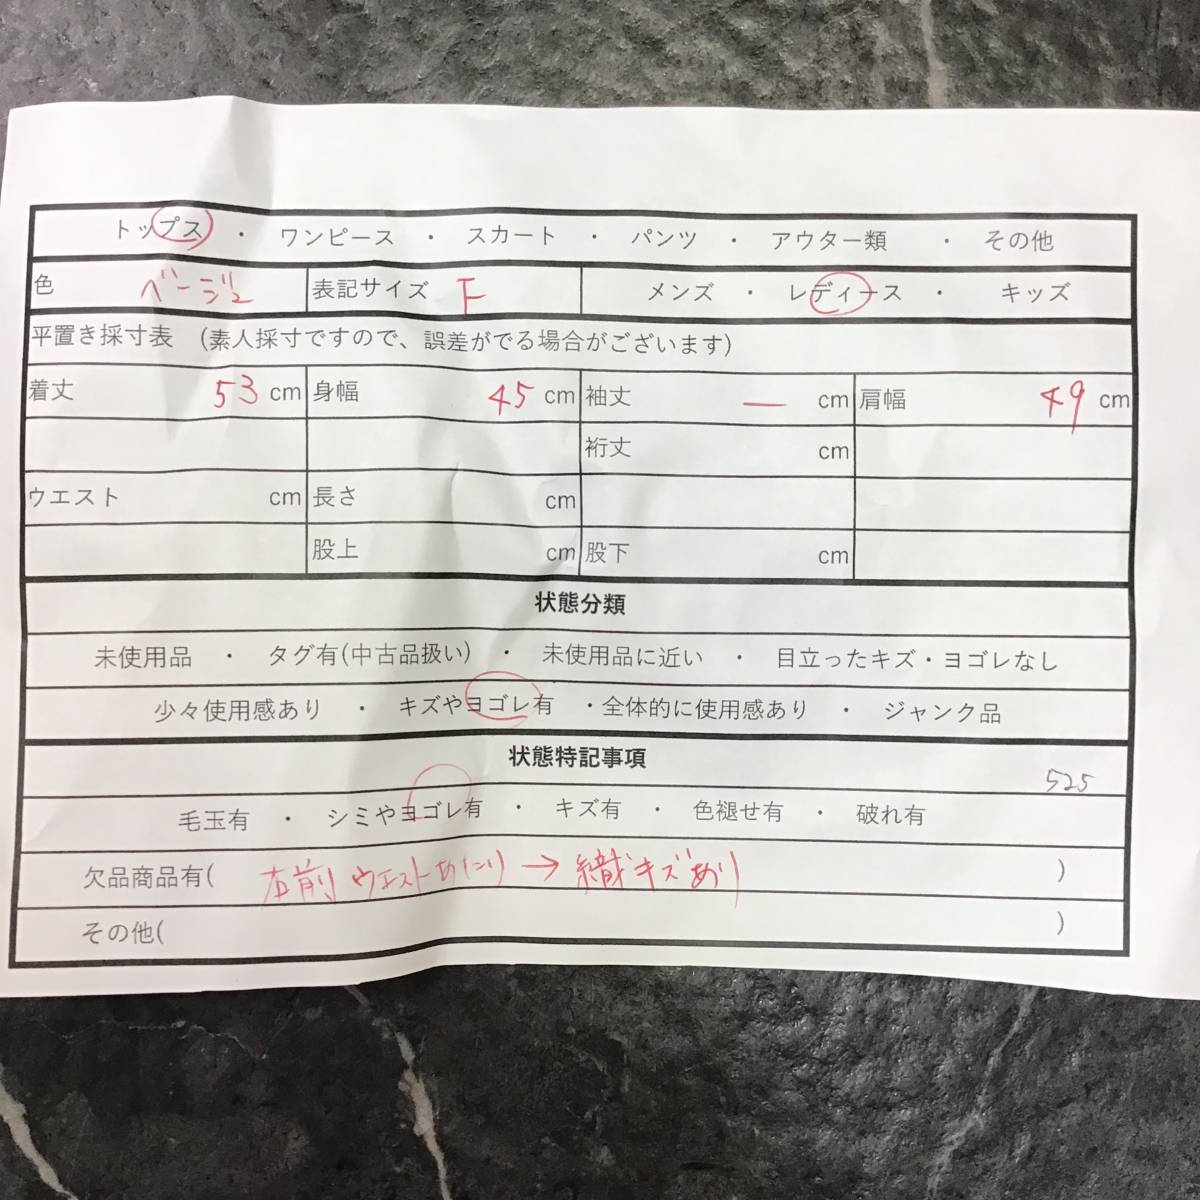 トップス ・ ワンピース ・ スカート ・ パンツ ・ アウター類 ・ その他
色 ベージュ 表記サイズ F メンズ ・ レディース ・ キッズ
平置き採寸表 (素人採寸ですので、誤差がでる場合がございます)
着丈 53 cm 身幅 45 cm 袖丈 ー cm 肩幅 49 cm
裄丈 cm
ウエスト cm 長さ cm
股上 cm 股下 cm
状態分類
未使用品 ・ タグ有(中古品扱い) ・ 未使用品に近い ・ 目立ったキズ・ヨゴレなし
少々使用感あり ・ キズやヨゴレ有 ・全体的に使用感あり ・ ジャンク品
状態特記事項
525
毛玉有 ・ シミやヨゴレ有 ・ キズ有 ・ 色褪せ有 ・ 破れ有
欠品商品有( 前 ウエストあたり → 織キズあり )
その他( )